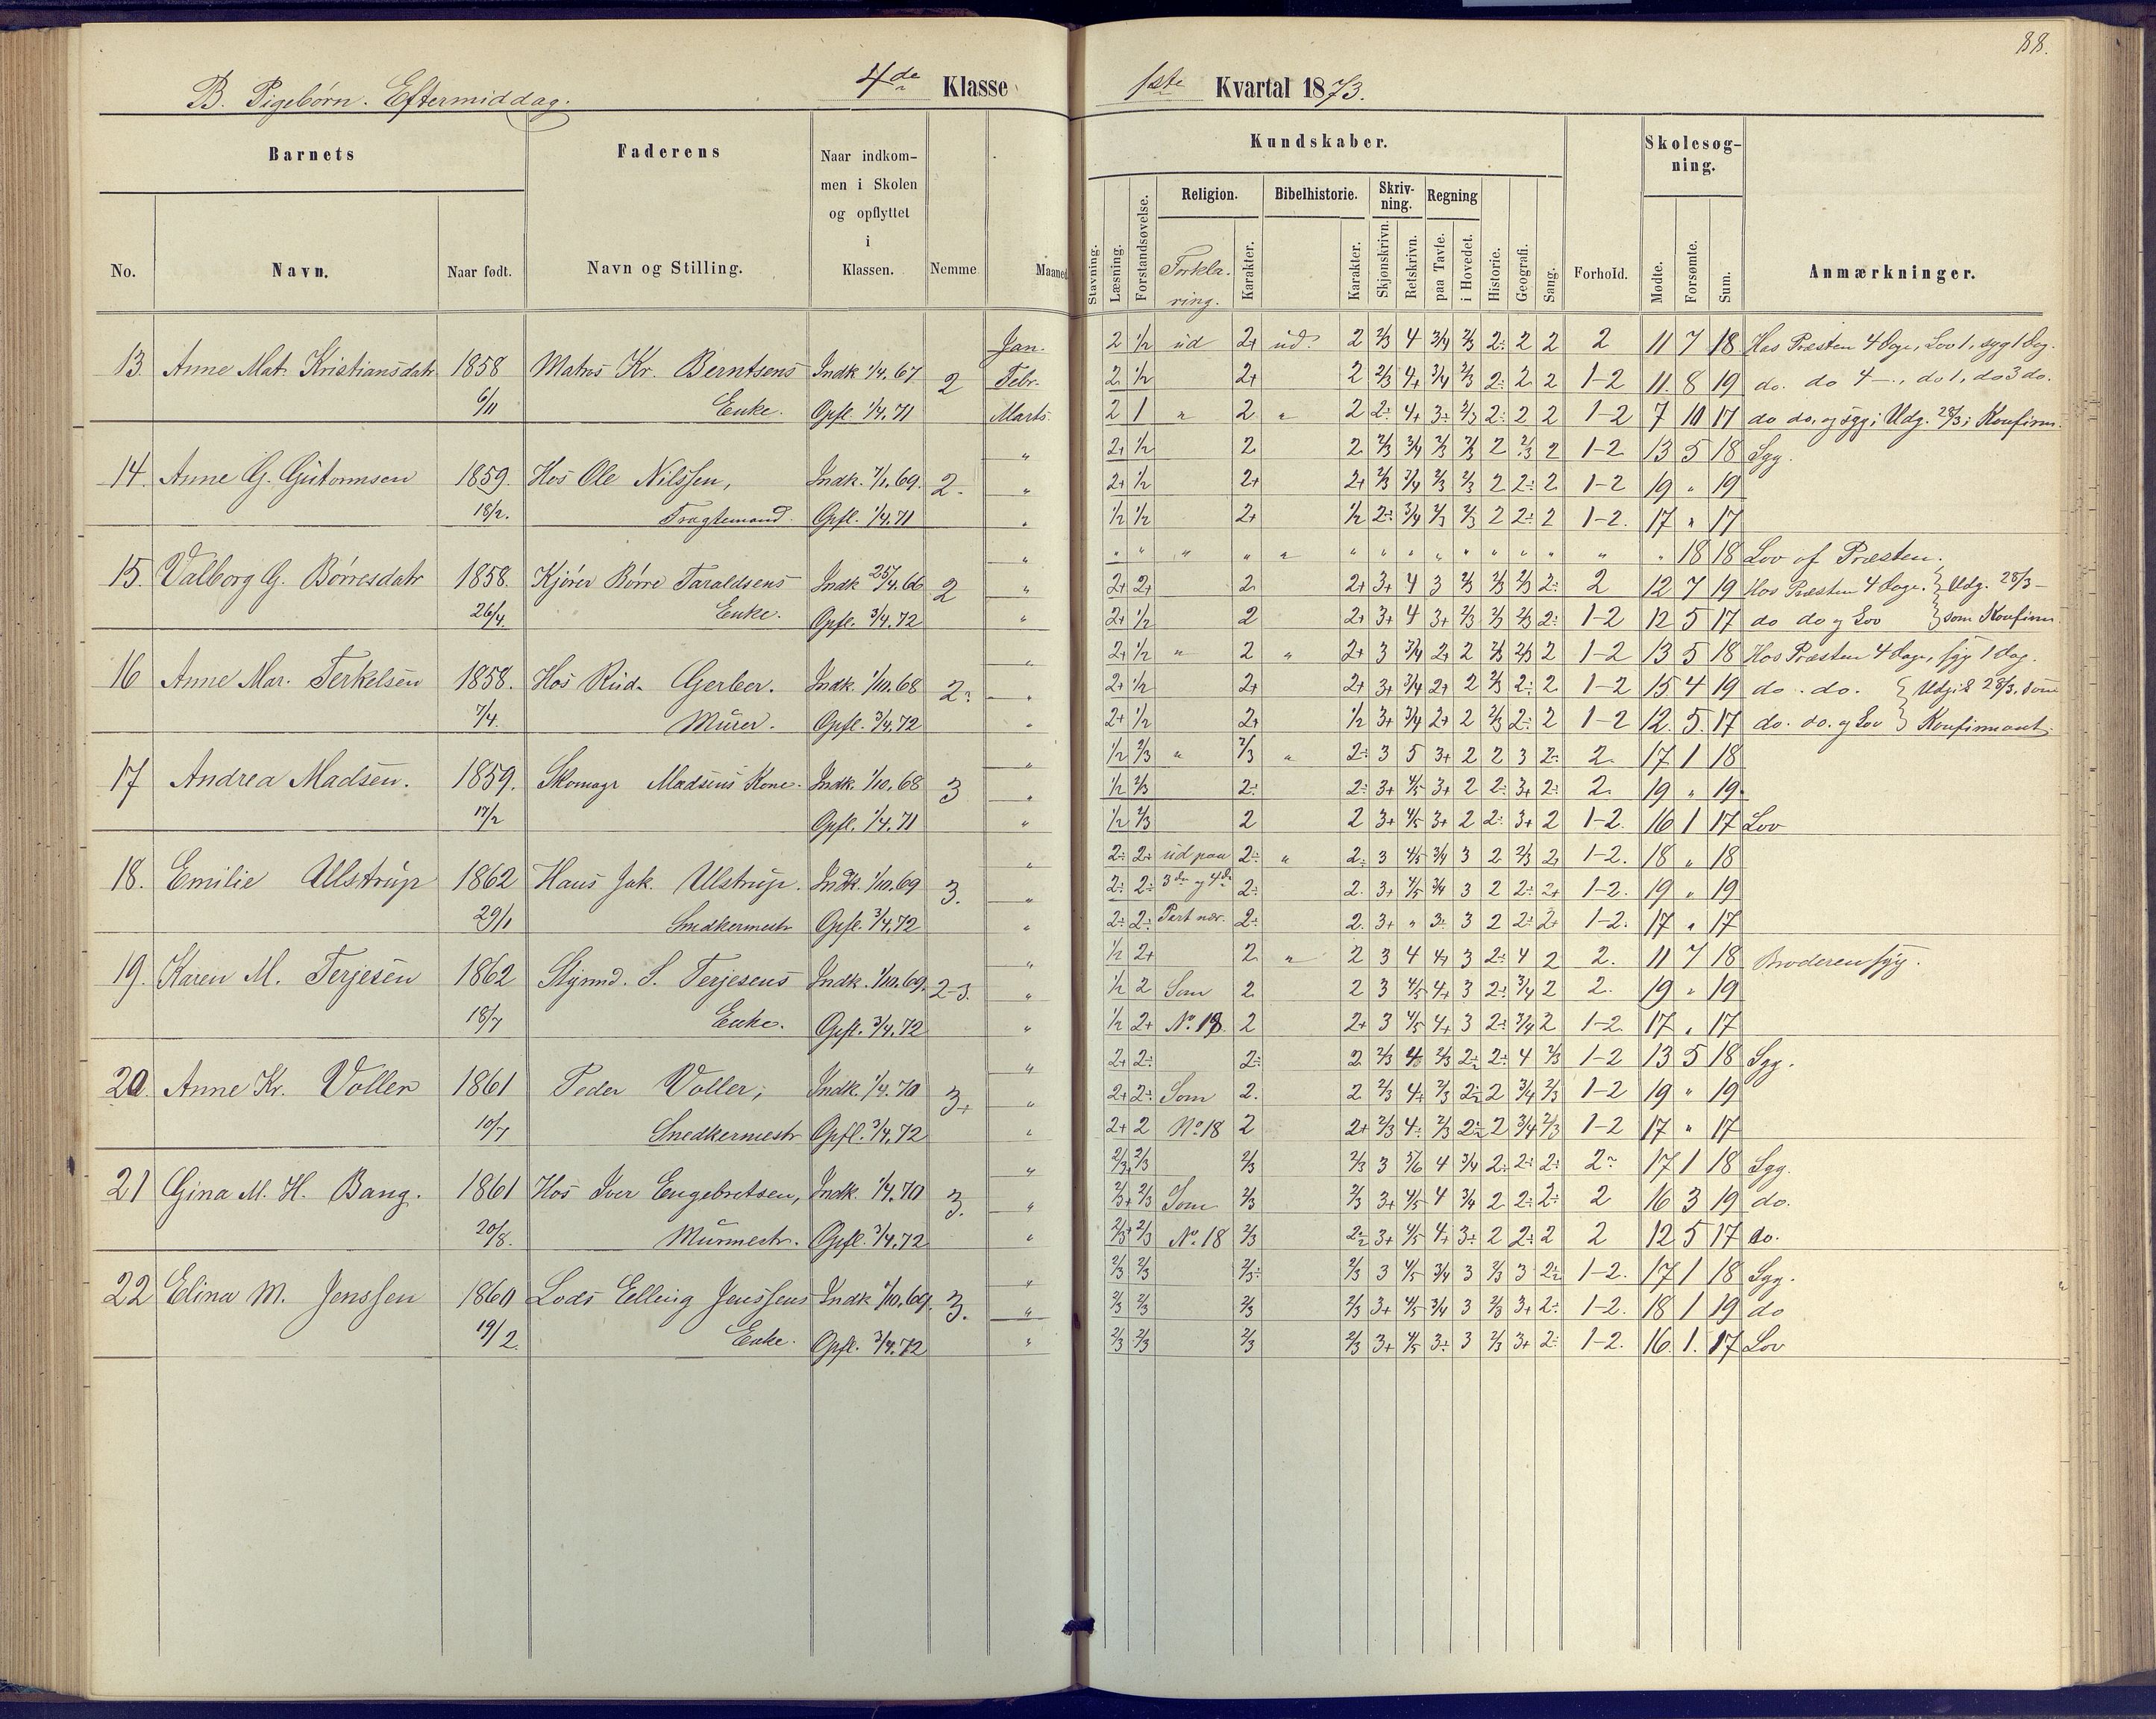 88.
B. Pigebørn. Eftermiddag. 4de Klasse 1ste Kvartal 1873.
Barnets Faderens Naar indkom- Kundskaber. Skolesøg-
men i Skolen ning.
og opflyttet Religion. Bibelhistorie. Skriv- Regning
i ning.
No. Navn. Naar født. Navn og Stilling. Klassen. Nemme Maaned Stavning. Læsning. Forstandsøvelse. Forkla- Karakter. Karakter. Skjønskrivn. Retskrivn. paa Tavle. i Hovedet. Historie. Geografi. Sang. Forhold. Mødte. Forsømte. Sum. Anmærkninger.
ring.
Jan. 2 1/2 ud 2+ ud? 2 2/3 4 3/4 2/3 2: 2 2 2 11 7 18 Hos Præsten 4 Dage, Lov 1, syg 1 Dag.
13. Anne Mat. Kristiansdatr 1858 Matros Kr. Berntsens Indk 1/4.67 2 Febr. 2 1/2 2+ 2 2/3 4+ 3/4 2/3 2: 2 2 1-2 11. 8 19 do. do 4 —., do 1, do 3 do.
6/11 Enke. Opfl. 1/4.71 Marts. 2 1 " 2 " 2 2: 4+ 3: 2/3 2: 2 2 1-2 7 10 17 do do, og syg; Udg. 28/3; Konfirm.
" 2+ 1/2 2 2 2/3 3/4 2/3 2/3 2 2/3 2 1-2 13 5 18 Syg.
14. Anne G. Gutormsen 1859. Hos Ole Nilssen, Indk. 7/1.69. 2. " 2+ 1/2 2+ 2+ 2/3 3/4 2/3 2/3 2 2: 2 1-2 19 " 19
18/2. Fragtemand. Opfl. 1/4.71 " 1/2 1/2 2+ 1/2 2: 3/4 2/3 2/3 2 2: 2 1-2. 17 " 17
" " " " " " " " " " " " " " " " " 18 18 Lov af Præsten.
15. Valborg G. Børresdatr 1858. Kjører Børre Taraldsens Indk 25/4.66 2 " 2+ 2+ 2 2+ 3+ 4 3 2/3 2/3 2/3 2: 2 12 7 19 Hos Præsten 4 Dage. } Udg. 28/3 —
26/4. Enke. Opfl. 3/4.72 " 2+ 1/2 2 2+ 3+ 4 3+ 2/3 2/3 2/3 2: 1-2 12 5 17 do do og Lov } som Konfirm.
" 2+ 1/2 " 2 " 2+ 3 3/4 2+ 2 2/3 2/3 2 1-2 13 5 18 Hos Præsten 4 Dage, syg 1 Dag.
16 Anne Mar. Terkelsen 1858. Hos Rud. Gerber. Indk. 1/10.68 2: " 2+ 1/2 2+ 2+ 3+ 3/4 2+ 2 2/3 2: 2 1-2 15 4 19 do. do. { Udgik 28/3. som
7/4. Murer. Opfl. 3/4.72 " 2+ 1/2 2+ 1/2 3+ 3/4 2+ 2 2/3 2: 2 1-2 12. 5. 17 do. do. og Lov } Konfirmant.
" 1/2 2/3 " 2/3 " 2: 3 5 3+ 2 2 3 2: 2. 17 1 18
17 Andrea Madsen. 1859. Skomagr Madsens Kone. Indk. 1/10.68 3 " 1/2 2/3 2: 2: 3+ 4/5 3+ 2 2: 3+ 2: 2. 19 " 19.
17/2 Opfl. 1/4.71 " 1/2 2/3 2 2 3+ 4/5 3+ 2 2: 3+ 2 1-2. 16 1 17 Lov
" 2: 2: ud paa 2: " 2: 3 4/5 3/4 3 2 2/3 2+ 1-2. 18 " 18
18. Emilie Ullstrup 1862 Hans Jak. Ulstrup. Indk. 1/10.69 3. " 2: 2: 3die og 4de 2: 2. 3+ 4/5 3/4 3 2 2: 2+ 1-2. 19 " 19
29/1 Snedkermestr Opfl. 3/4.72 " 2: 2: Part nær. 2: 2. 3+ " 3: 3 2 2: 2+ 1-2. 17 " 17
" 1/2 2+ 2 " 2 3 4 4+ 3 2: 4 2 2. 11 7 18 Broderen syg.
19. Karen M. Terjesen 1862 Styrmd. S. Terjesens Indk. 1/10.69. 2-3. " 1/2 2 Som 2 2 3 4/5 4+ 3 2: 3/4 2 2. 19 " 19
18/7 Enke. Opfl. 3/4.72 " 1/2 2+ No. 18 2 2+ 3 4/5 4+ 3 2: 3/4 2 1-2. 17 " 17
" 2+ 2: 2: 2 2/3 4 2/3 2: 2: 4 2/3 1-2 13 5 18 Syg.
20. Anne Kr. Voller 1861 Peder Voller, Indk. 1/4.70 3+ " 2+ 2: Som 2. 2 2/3 4+ 2/3 2: 2 3/4 2/3 1-2 19 " 19
10/7 Snedkermestr Opfl. 3/4.72 " 2+ 2 No. 18 2 2+ 2/3 4: 2/3 2: 2 3/4 2/3 1-2 17 " 17
" 2/3 2/3 2/3 2/3 3 5/6 4 3/4 2: 2: 2: 2: 17 1 18 Syg.
21 Gina M. H. Bang. 1861 Hos Iver Engebretsen, Indk. 1/4.70 3. " 2/3+ 2/3 Som 2/3 2/3 3+ 4/5 4 3/4 2 2: 2: 2 16 3 19 do.
20/8. Murmestr. Opfl. 3/4.72 " 2/3+ 2/3 No. 18 2/3 2: 3+ 4/5 4+ 3: 2 2: 2 2 12 5 17 do.
" 2/3 2/3 2/3: 2/3 3 4/5 3/4 3 2/3 3 2: 1-2. 17 1 18 Syg.
22 Elina M. Jenssen 1860 Lods Elling Jenssens Indk 1/10.69. 3. " 2/3 2/3 2/3 2/3 3+ 4/5 3/4 3 2/3 3+ 2: 1-2. 18 1 19 do
19/2. Enke. Opfl. 3/4.72 " 2/3 2/3 2/3 2/3 3+ 4/5 3: 3 2/3 3+ 2: 1-2. 16. 1. 17 Lov